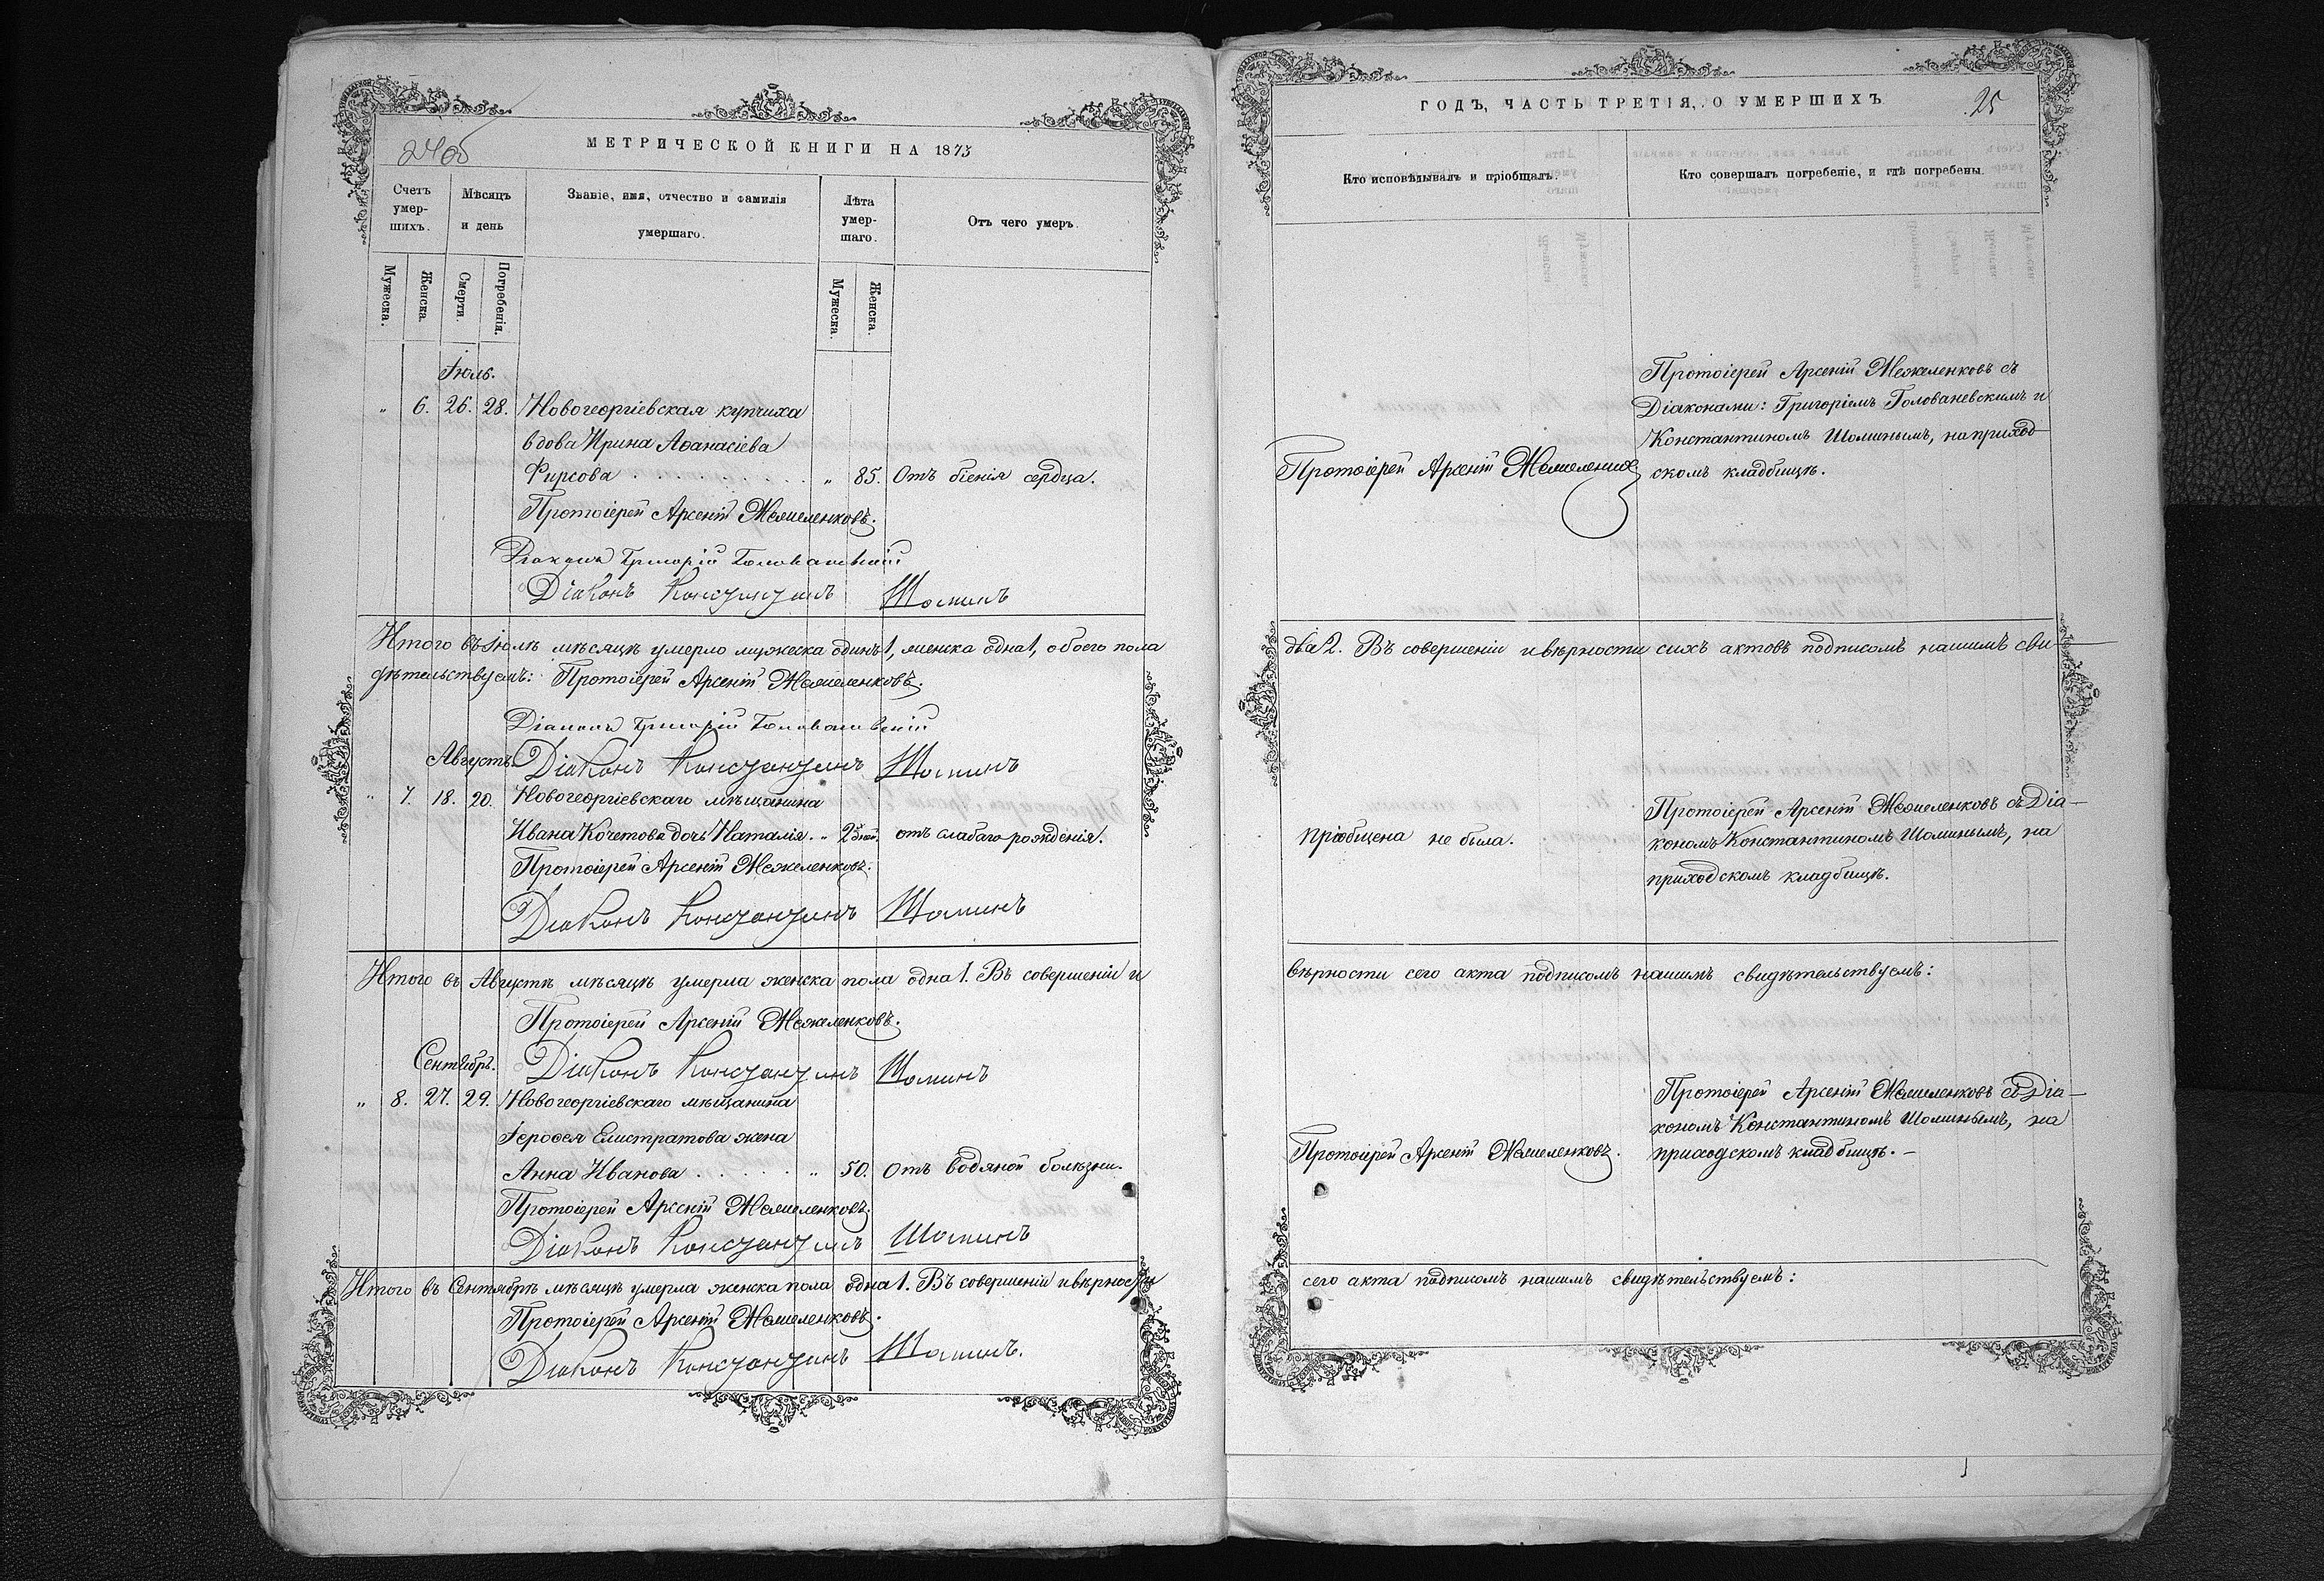 24об
МЕТРИЧЕСКОЙ КНИГИ НА 1875
Счетъ умер-шихъ.
Мѣсяцъ и день
Званіе, имя, отчество и фамилія умершаго.
Лѣта умер-шаго.
Отъ чего умеръ.
Мужеска.
Женска.
Смерти.
Погребенія.
Мужеска.
Женска.
Іюль.
" 6. 26. 28. Новогеоргіевская купчиха
вдова Ирина Аѳанасіева
Фирсова . . . . . . . . . " 85. Отъ біенія сердца.
Протоіерей Арсеній Межеленковъ.
Діаконъ Григорій Голованевскій
Діаконъ Константинъ Шоминъ
Итого въ Іюлѣ мѣсяцѣ умерло мужеска одинъ 1, женска одна 1, обоего пола
дѣтельствуемъ: Протоіерей Арсеній Межеленковъ.
Діаконъ Григорій Голованевскій
Августъ. Діаконъ Константинъ Шоминъ
" 7. 18. 20. Новогеоргіевскаго мѣщанина
Ивана Кочетова дочь Наталія. " 2 дней. отъ слабаго рожденія.
Протоіерей Арсеній Межеленковъ.
Діаконъ Константинъ Шоминъ
Итого въ Августѣ мѣсяцѣ умерла женска пола одна 1. Въ совершеніи и
Протоіерей Арсеній Межеленковъ.
Сентябрь. Діаконъ Константинъ Шоминъ
" 8. 27. 29. Новогеоргіевскаго мѣщанина
Іероѳея Елистратова жена
Анна Иванова . . . . . . " 50. Отъ водяной болѣзни.
Протоіерей Арсеній Межеленковъ.
Діаконъ Константинъ Шоминъ
Итого въ Сентябрѣ мѣсяцѣ умерла женска пола одна 1. Въ совершеніи и вѣрности
Протоіерей Арсеній Межеленковъ.
Діаконъ Константинъ Шоминъ.
ГОДЪ, ЧАСТЬ ТРЕТІЯ, О УМЕРШИХЪ
25
Кто исповѣдывалъ и пріобщалъ.
Кто совершалъ погребеніе, и гдѣ погребены.
Протоіерей Арсеній Межеленковъ съ
Діаконами: Григоріемъ Голованевскимъ и
Константиномъ Шоминымъ, на приход-
Протоіерей Арсеній Межеленковъ
скомъ кладбищѣ.
два 2. Въ совершеніи и вѣрности сихъ актовъ подписомъ нашимъ сви-
Протоіерей Арсеній Межеленковъ съ Діа-
пріобщена не была.
кономъ Константиномъ Шоминымъ, на
приходскомъ кладбищѣ.
вѣрности сего акта подписомъ нашимъ свидѣтельствуемъ:
Протоіерей Арсеній Межеленковъ съ Діа-
кономъ Константиномъ Шоминымъ, на
Протоіерей Арсеній Межеленковъ.
приходскомъ кладбищѣ. -
сего акта подписомъ нашимъ свидѣтельствуемъ: